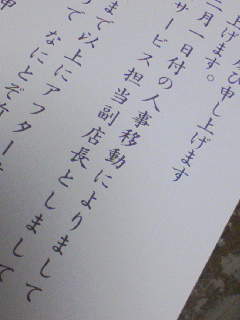 び申し上げます
上げます。
二月一日付の人事移動によりまして
サービス担当副店長としまして
まで以上にアフター
なにとぞ
申